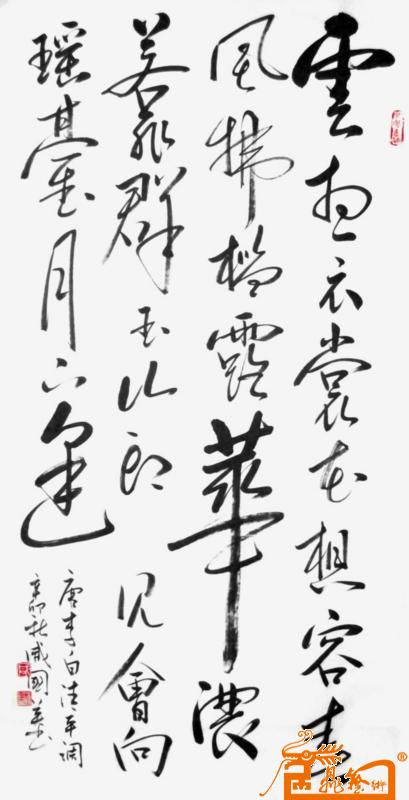 雲想衣裳花想容春
風拂檻露華濃
若非群玉山頭見會向
瑤臺月下逢
唐李白清平調
辛卯秋國書